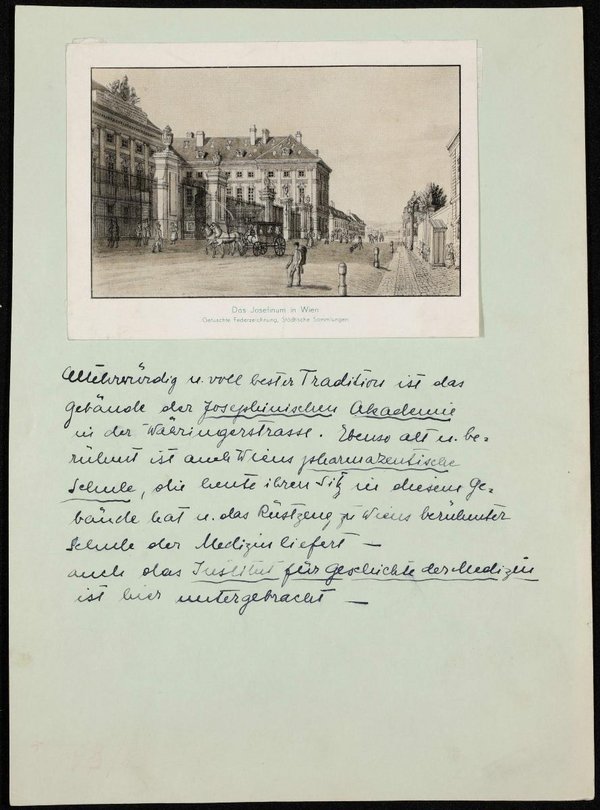 Das Josefinum in Wien
Getuschte Federzeichnung, Städtische Sammlungen
Altehrwürdig u. voll bester Tradition ist das
Gebäude der Josephinischen Akademie
in der Währingerstrasse. Ebenso alt u. be-
rühmt ist auch Wiens pharmazeutische
Schule, die heute ihren Sitz in diesem Ge-
bäude hat u. das Rüstzeug zu Wiens berühmter
Schule der Medizin liefert —
auch das Institut für Geschichte der Medizin
ist hier untergebracht —